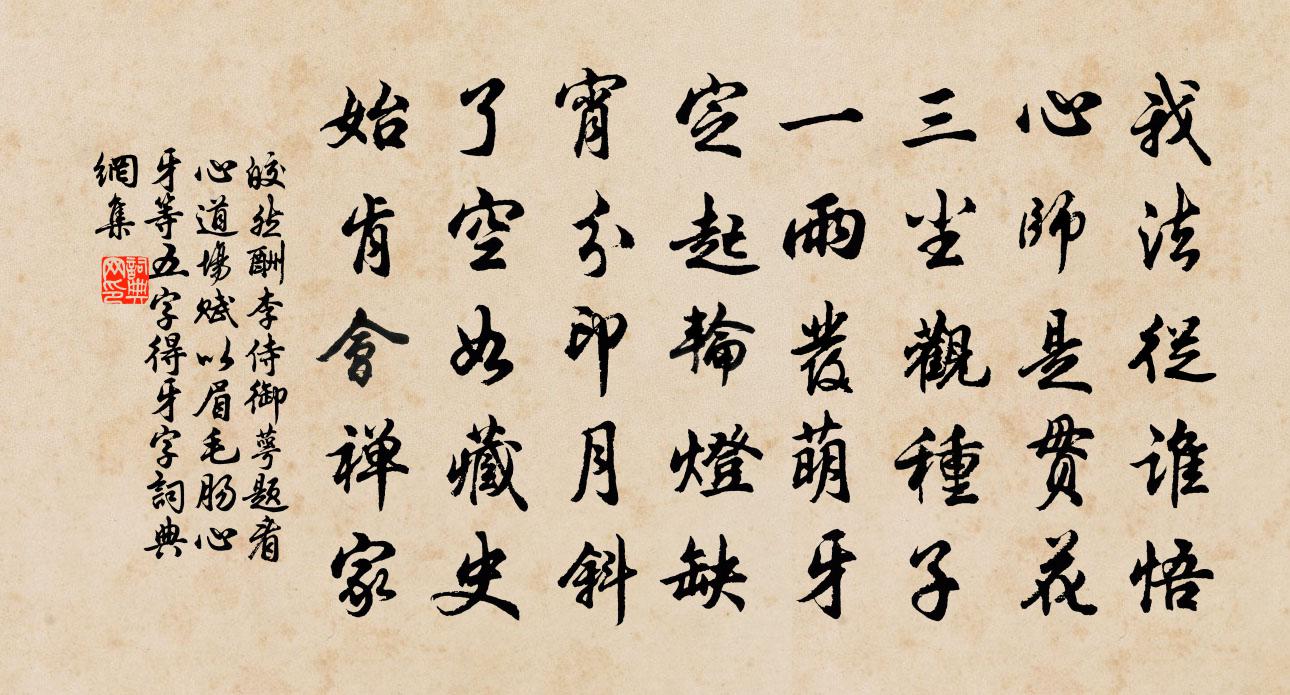 我法從誰悟
心師是貫花
三塵觀種子
一雨發萌牙
定起輪燈缺
宵分印月斜
了空如藏史
始肯會禪家
皎然酬李侍御萼題看
心道場賦以眉毛腸心
牙等五字得牙字詞典
網集
詞典
网印